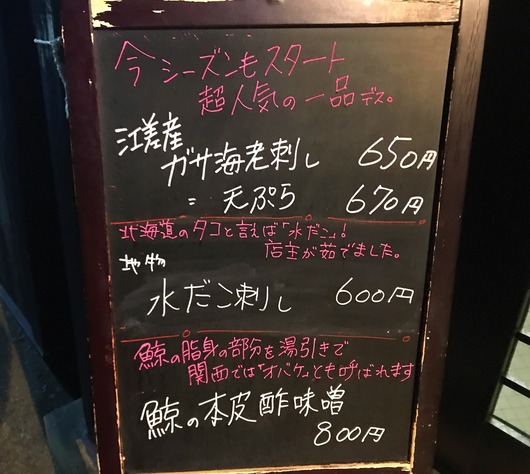 今シーズンもスタート
超人気の一品デス。
江差産
ガサ海老刺し 650円
〃 天ぷら 670円
北海道のタコと言えば「水だこ」!
店主が茹でました。
地物
水だこ刺し 600円
鯨の脂身の部分を湯引きで
関西では「オバケ」とも呼ばれます
鯨の本皮酢味噌
800円